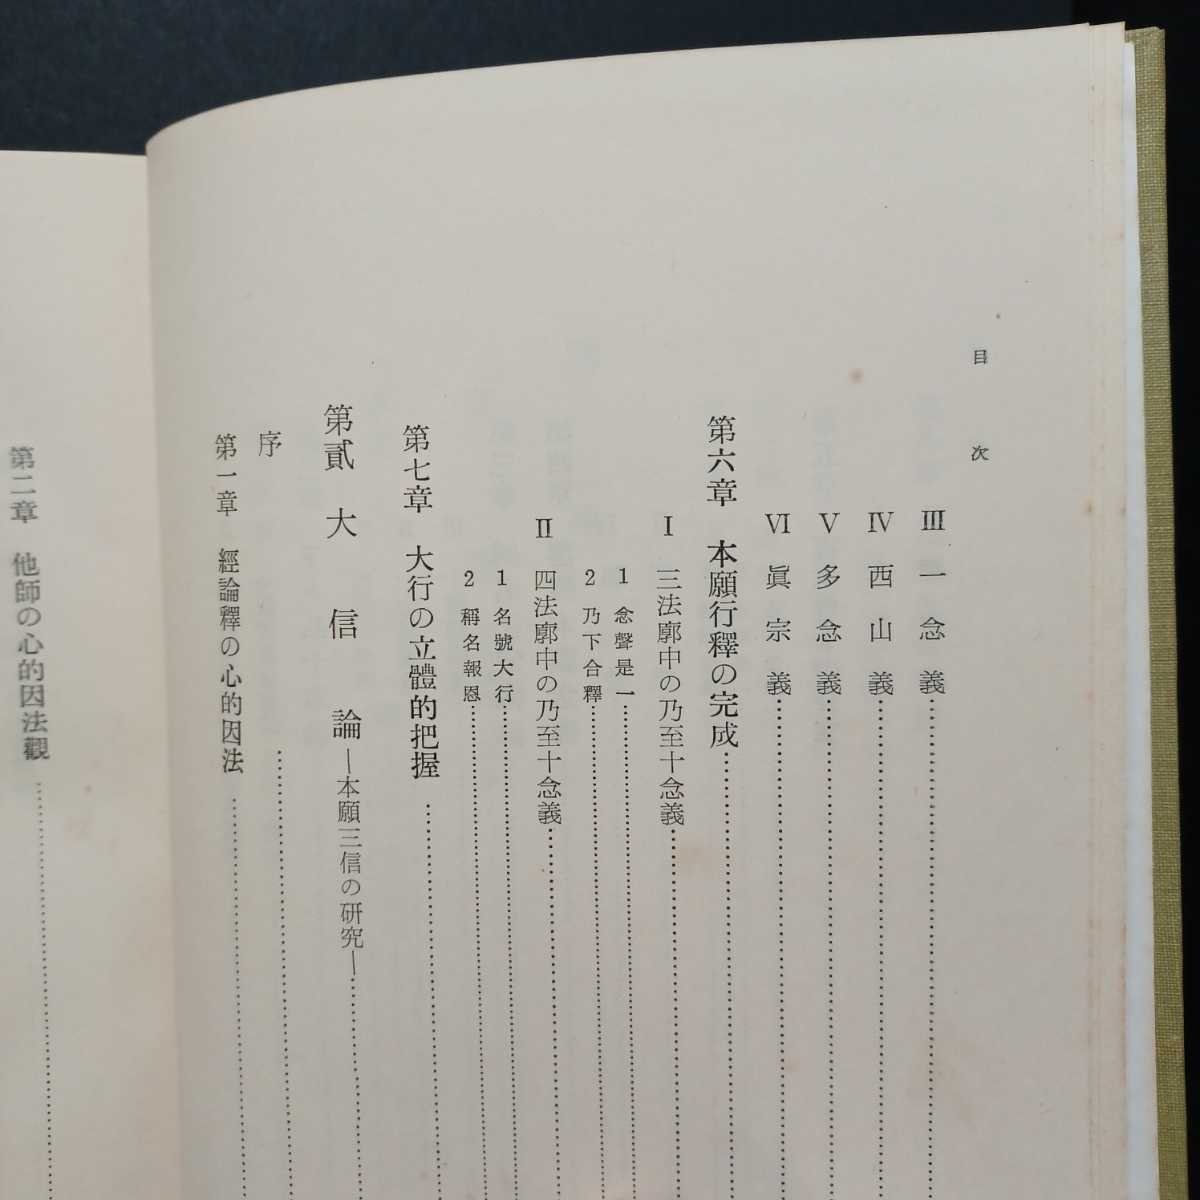 目次
III 一念義
IV 西山義
V 多念義
VI 眞宗義
第六章 本願行釋の完成
I 三法廓中の乃至十念義
1 念聲是一
2 乃下合釋
II 四法廓中の乃至十念義
1 名號大行
2 稱名報恩
第七章 大行の立體的把握
第貳 大信論―本願三信の硏究―
序
第一章 經論釋の心的因法
第二章 他師の心的因法觀